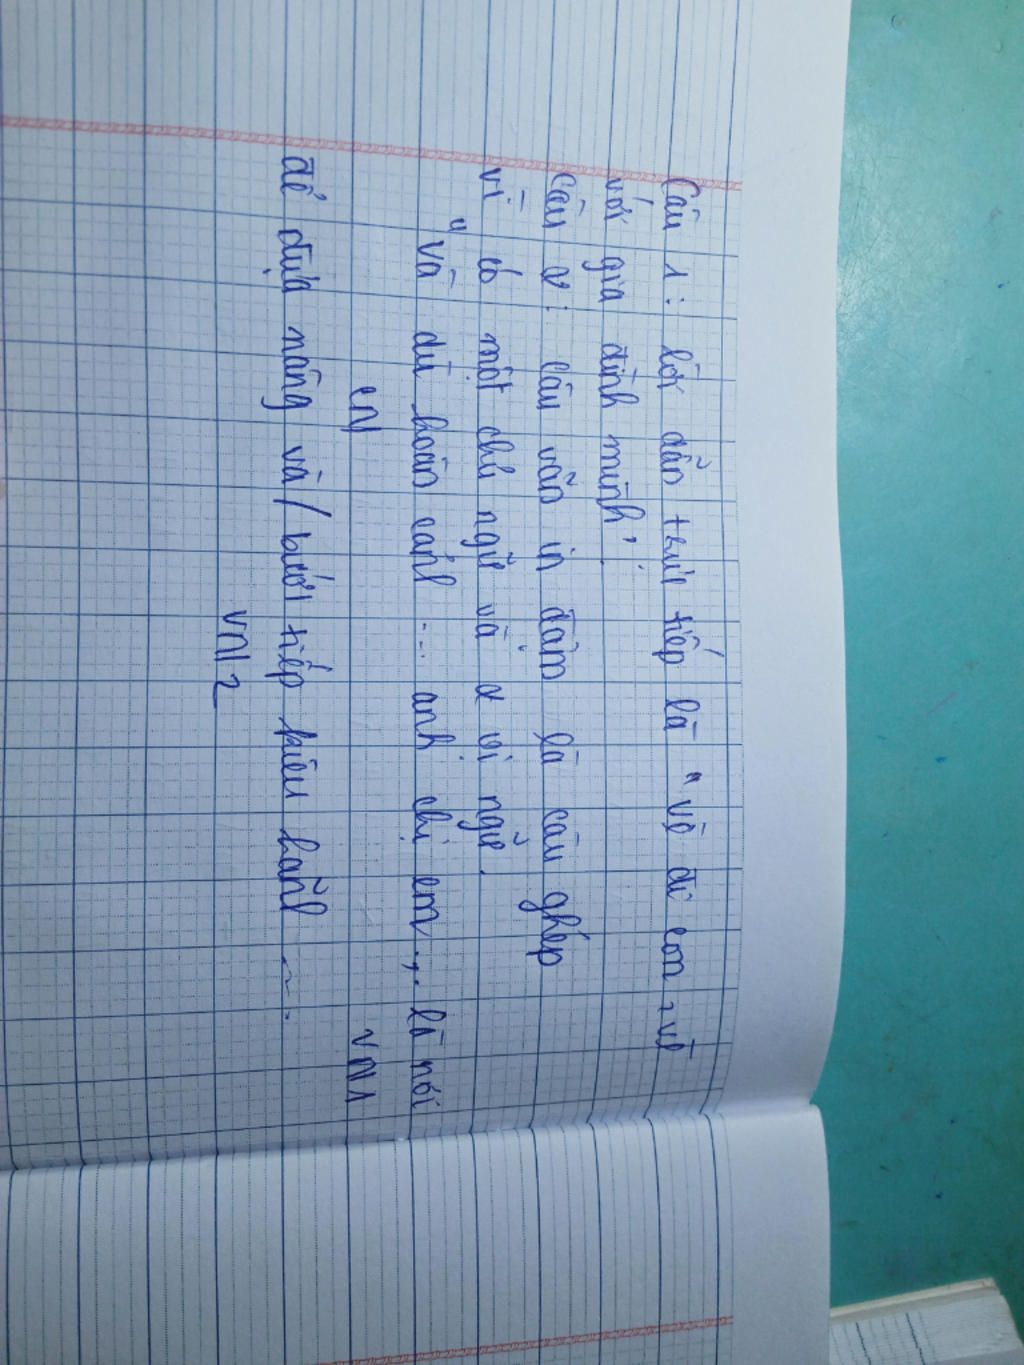 Câu 1: lời dẫn trực tiếp là "về đi con, về
với gia đình mình"
Câu 2: Câu văn in đậm là câu ghép
vì có một chủ ngữ và 2 vị ngữ.
"Và dù hoàn cảnh ... anh chị em ... là nơi
CN VN1
để dựa nâng và / bước tiếp kiêu hãnh ...
VN2